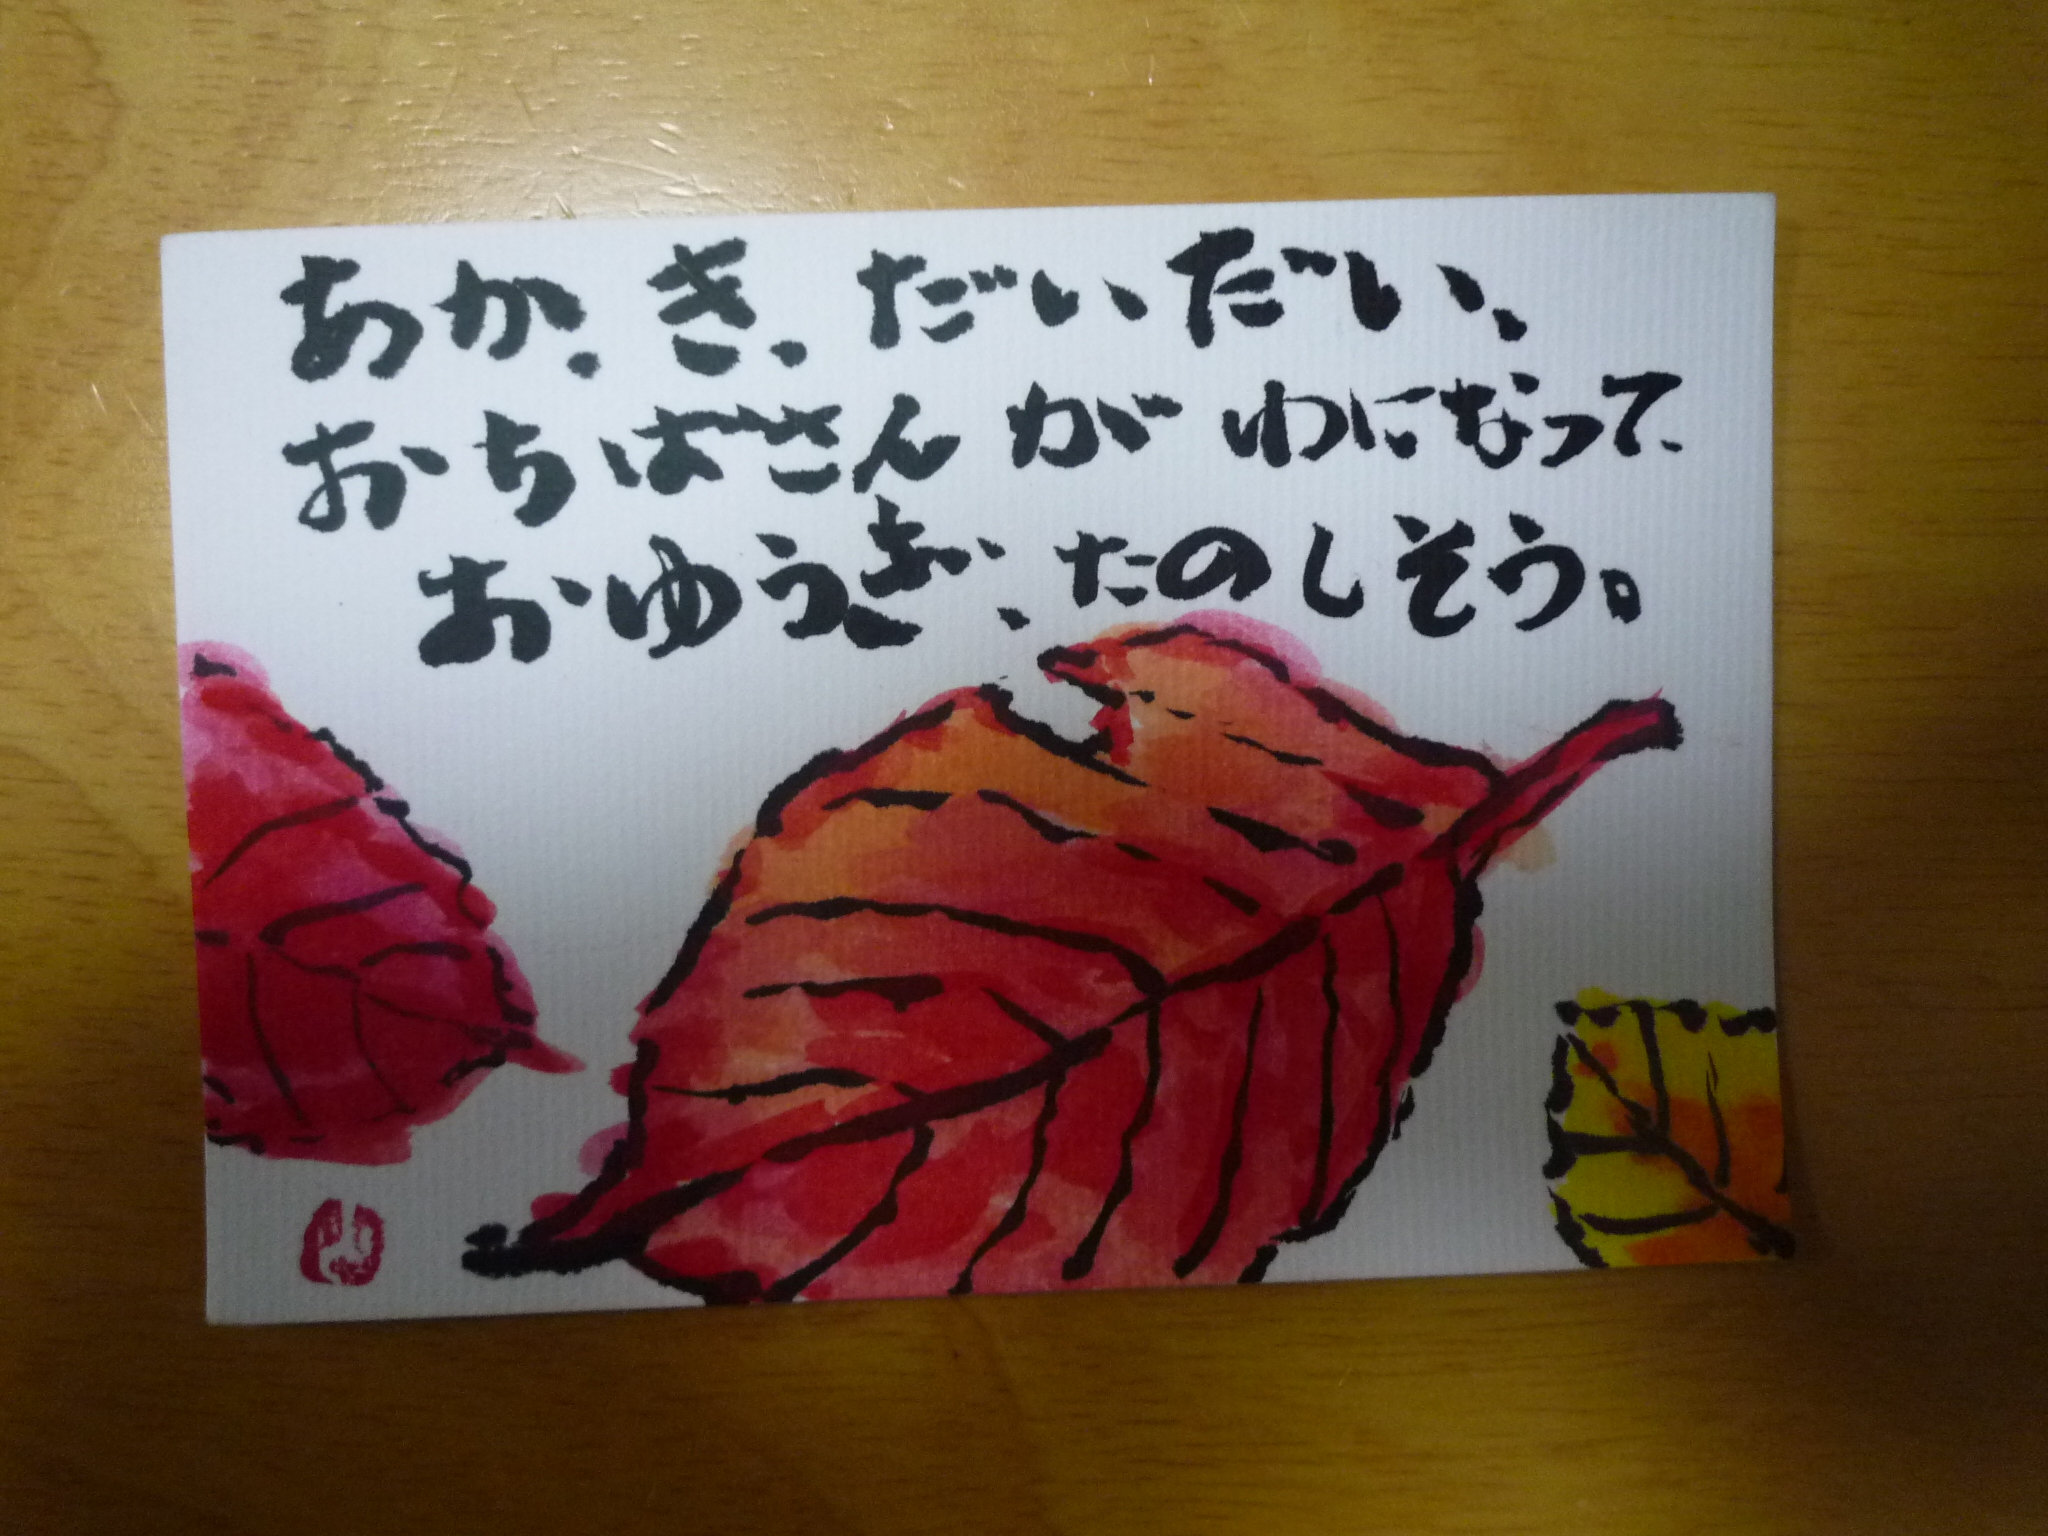 あか、き、だいだい、
おちばさんがわになって
おゆうぎ、たのしそう。